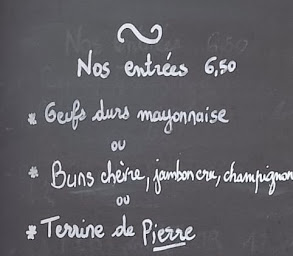 Nos entrées 6,50
* Oeufs durs mayonnaise
ou
* Buns chèvre, jambon cru, champignon
ou
* Terrine de Pierre